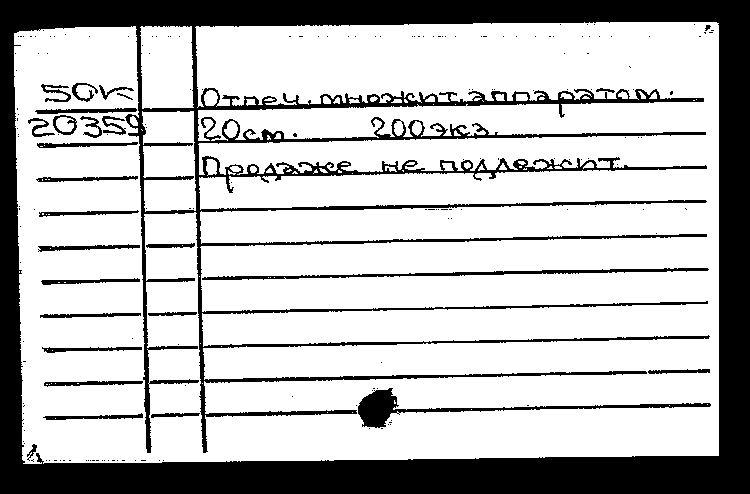 50К Отпеч. множит. аппаратом.
20359 20 см. 200 экз.
Продаже не подлежит.